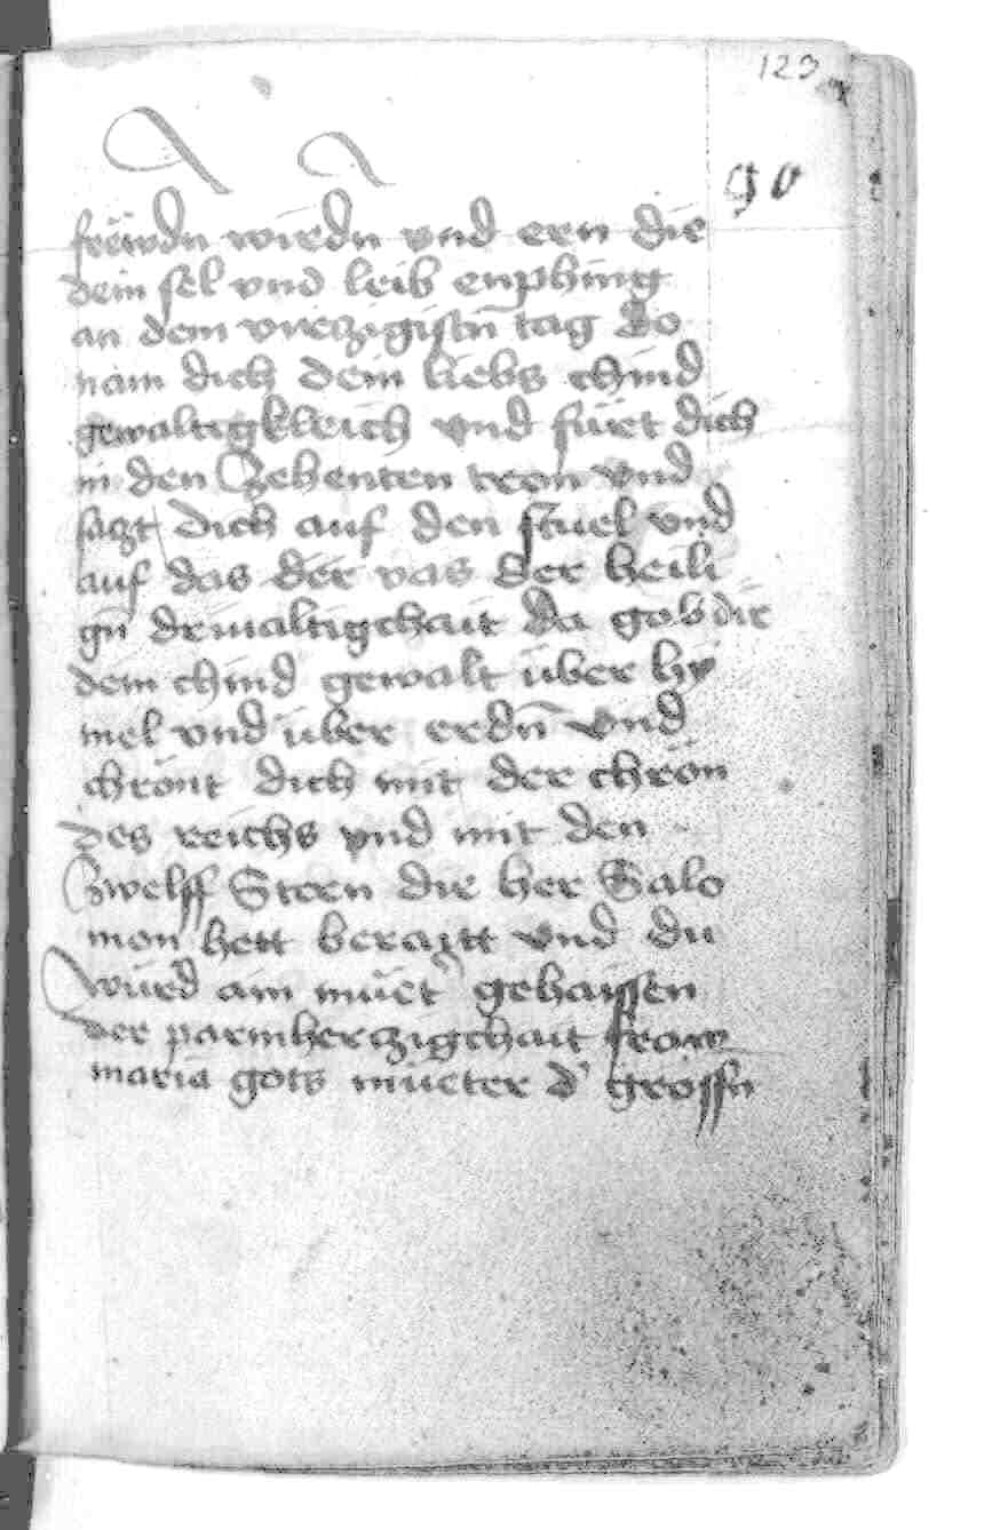 123
90
frëwdn wirdn vnd ern die
dein sel vnd leib enphing
an dem vierczigistn tag Do
nam dich dein liebs chind
gewaltigkleich vnd fuͤrt dich
in den Zehenten tron vnd
saczt dich auf den stuel vnd
auf das der vas der heili
gn̄ drivaltigchait Da gab dir
dein chind gewalt über hy
mel vnd über erdn̄ vnd
chrönt dich mit der chron
des reichs vnd mit den
Zwelff Steren die her Salo
mon hett beraitt vnd du
würd ain muͤet' gehaissen
der parmherczigchait fraw
maria gots mueter d' grossn